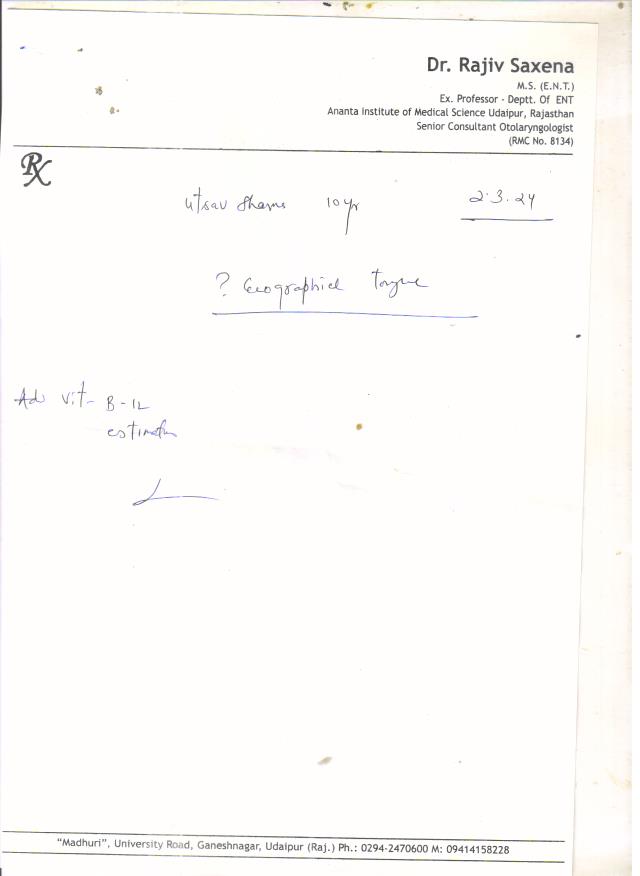 Dr. Rajiv Saxena
M.S. (E.N.T.)
Ex. Professor - Deptt. Of ENT
Ananta Institute of Medical Science Udaipur, Rajasthan
Senior Consultant Otolaryngologist
(RMC No. 8134)
Rx
Utsav 10 yr 2.3.24
? Geographicl tongue
Adv Vit- B-12
estimatn
"Madhuri", University Road, Ganeshnagar, Udaipur (Raj.) Ph.: 0294-2470600 M: 09414158228